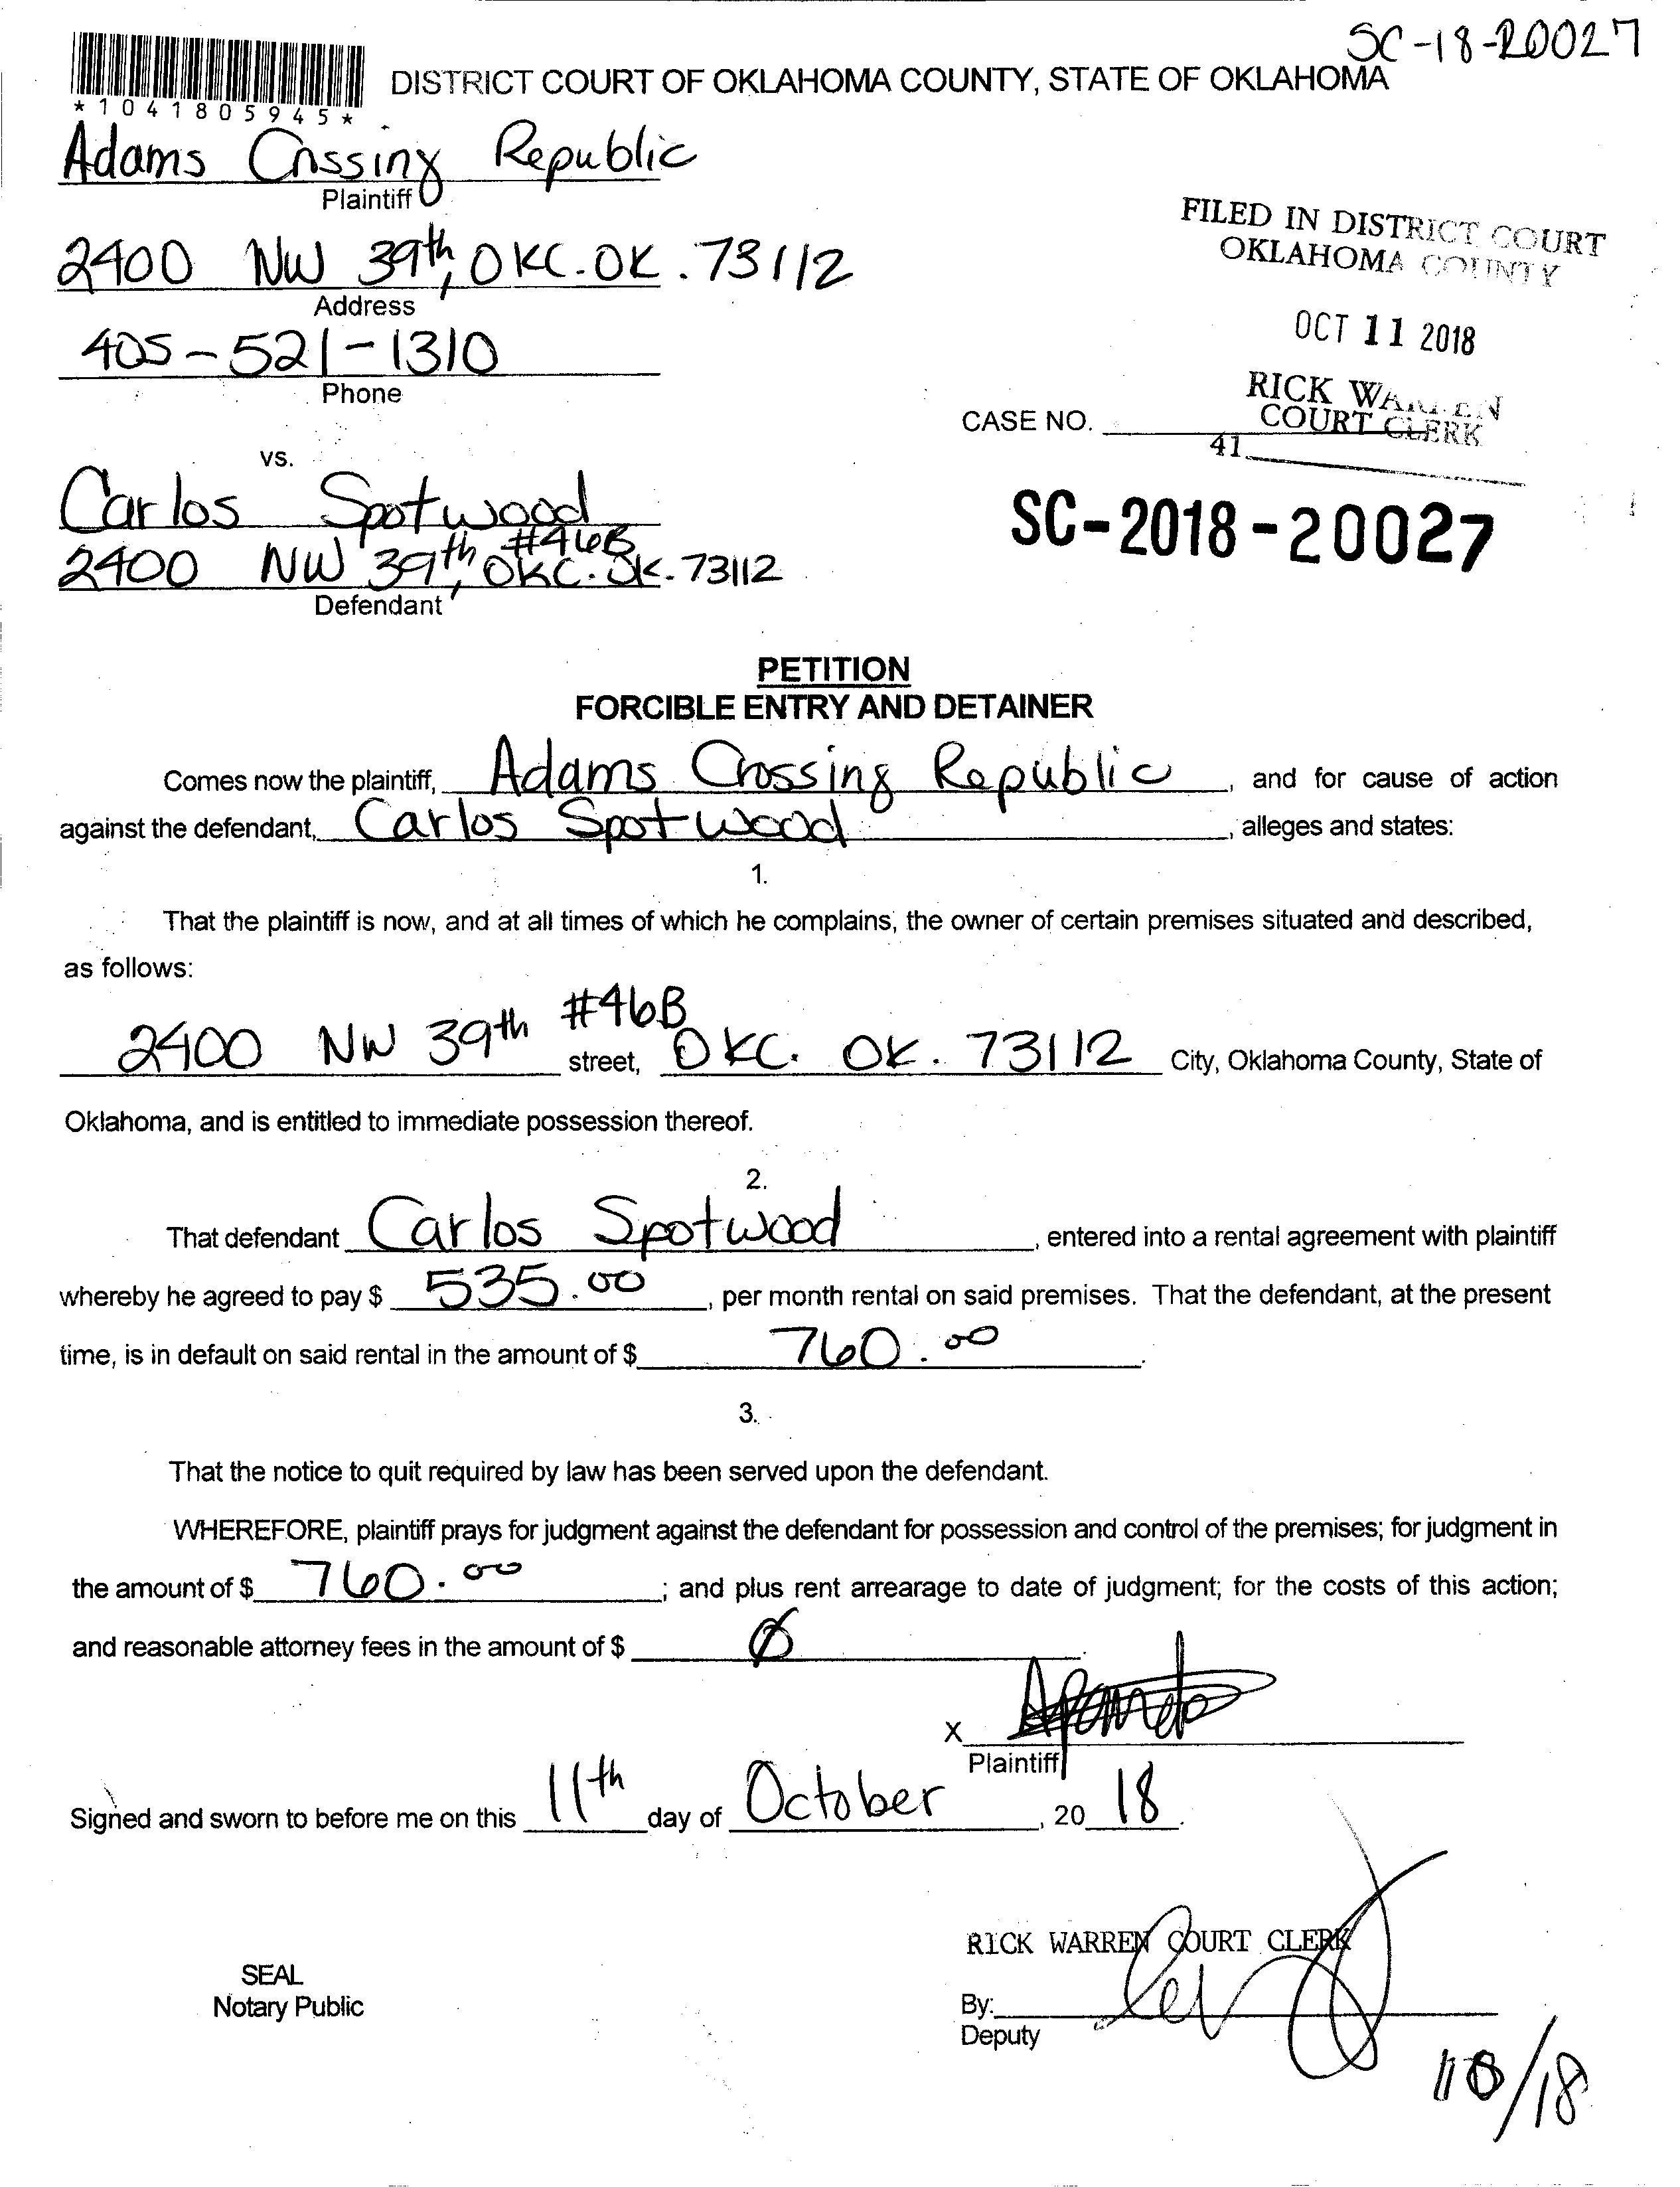 SC-18-20027
DISTRICT COURT OF OKLAHOMA COUNTY, STATE OF OKLAHOMA
*1041805945*
Adams Crossing Republic
Plaintiff
2400 NW 39th, OKC. OK. 73112
Address
405-521-1310
Phone
FILED IN DISTRICT COURT
OKLAHOMA COUNTY
OCT 11 2018
RICK WARREN
COURT CLERK
41
CASE NO.
vs.
Carlos Spotwood
#46B
2400 NW 39th, OKC. OK. 73112
Defendant
SC-2018-20027
PETITION
FORCIBLE ENTRY AND DETAINER
Comes now the plaintiff, Adams Crossing Republic, and for cause of action
against the defendant, Carlos Spotwood, alleges and states:
1.
That the plaintiff is now, and at all times of which he complains, the owner of certain premises situated and described,
as follows:
2400 NW 39th #46B street, OKC. OK. 73112 City, Oklahoma County, State of
Oklahoma, and is entitled to immediate possession thereof.
2.
That defendant Carlos Spotwood, entered into a rental agreement with plaintiff
whereby he agreed to pay $ 535.00, per month rental on said premises. That the defendant, at the present
time, is in default on said rental in the amount of $ 760.00.
3.
That the notice to quit required by law has been served upon the defendant.
WHEREFORE, plaintiff prays for judgment against the defendant for possession and control of the premises; for judgment in
the amount of $ 760.00; and plus rent arrearage to date of judgment; for the costs of this action;
and reasonable attorney fees in the amount of $ Ø.
X
Plaintiff
Signed and sworn to before me on this 11th day of October, 20 18.
RICK WARREN COURT CLERK
SEAL
Notary Public
By:
Deputy